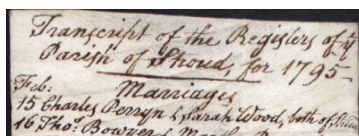 Transcript of the Registers of ye
Parish of Stroud, for 1795
Marriages
Feb:
15 Charles Perryn & Sarah Wood, both of
16 Thos. Bowyer